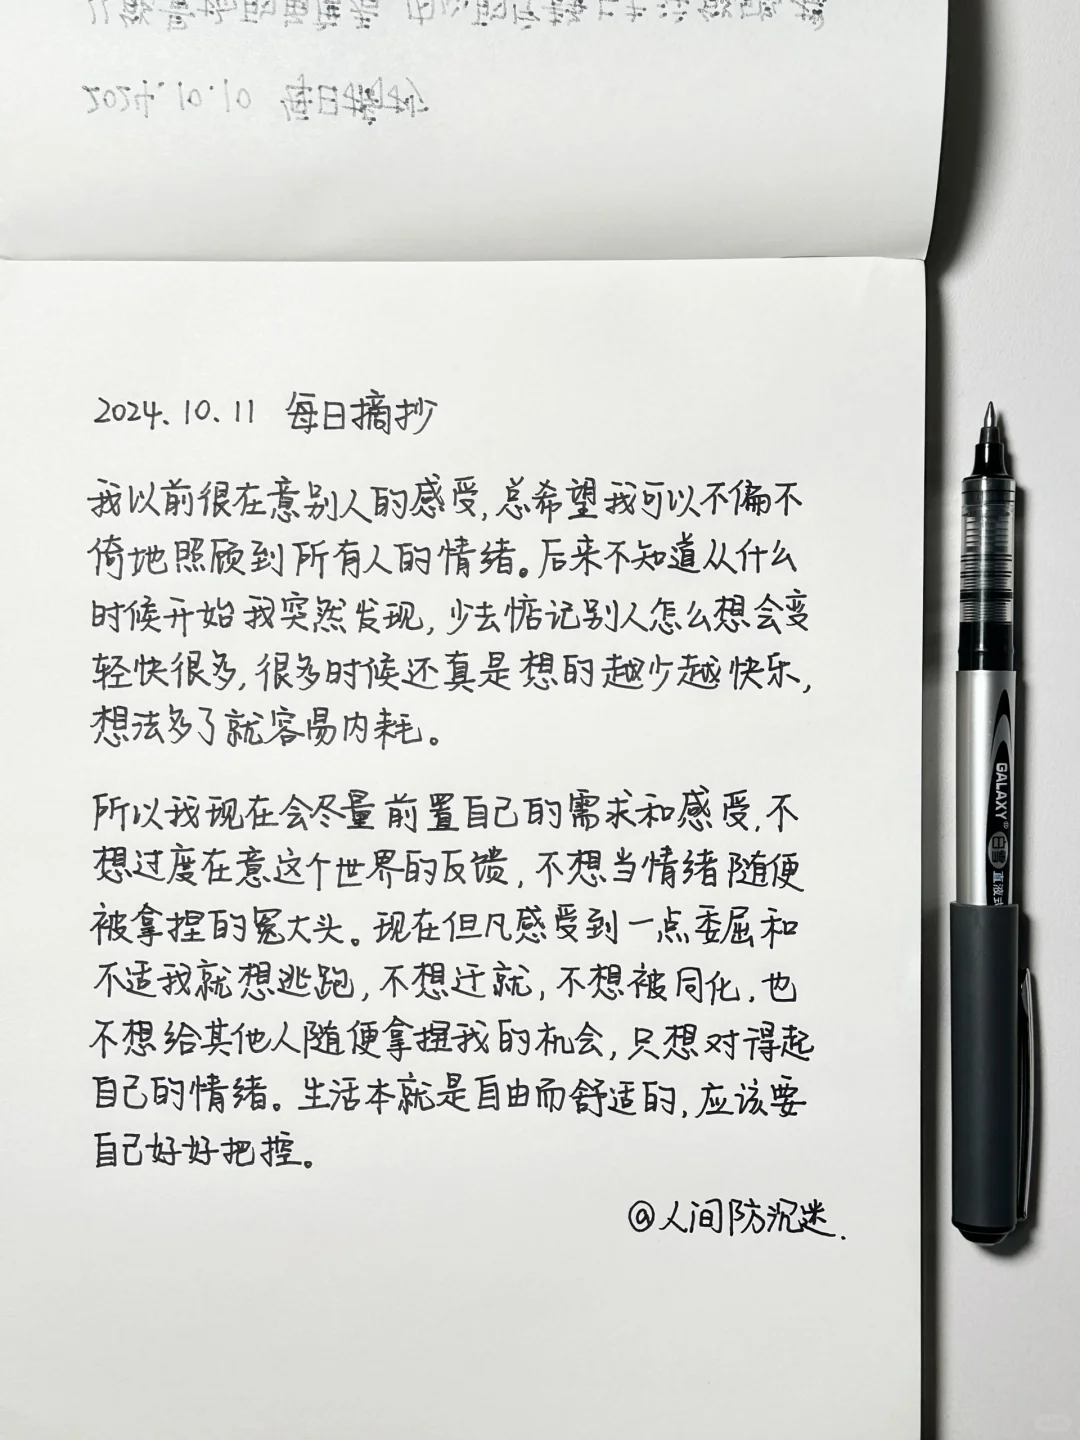 2024.10.10 每日摘抄
2024.10.11 每日摘抄
我以前很在意别人的感受,总希望我可以不偏不
倚地照顾到所有人的情绪。后来不知道从什么
时候开始我突然发现,少去惦记别人怎么想会变
轻快很多,很多时候还真是想的越少越快乐,
想法多了就容易内耗。
所以我现在会尽量前置自己的需求和感受,不
想过度在意这个世界的反馈,不想当情绪随便
被拿捏的冤大头。现在但凡感受到一点委屈和
不适我就想逃跑,不想迁就,不想被同化,也
不想给其他人随便拿捏我的机会,只想对得起
自己的情绪。生活本就是自由而舒适的,应该要
自己好好把控。
@人间防沉迷.
GALAXY®
白雪
直液式